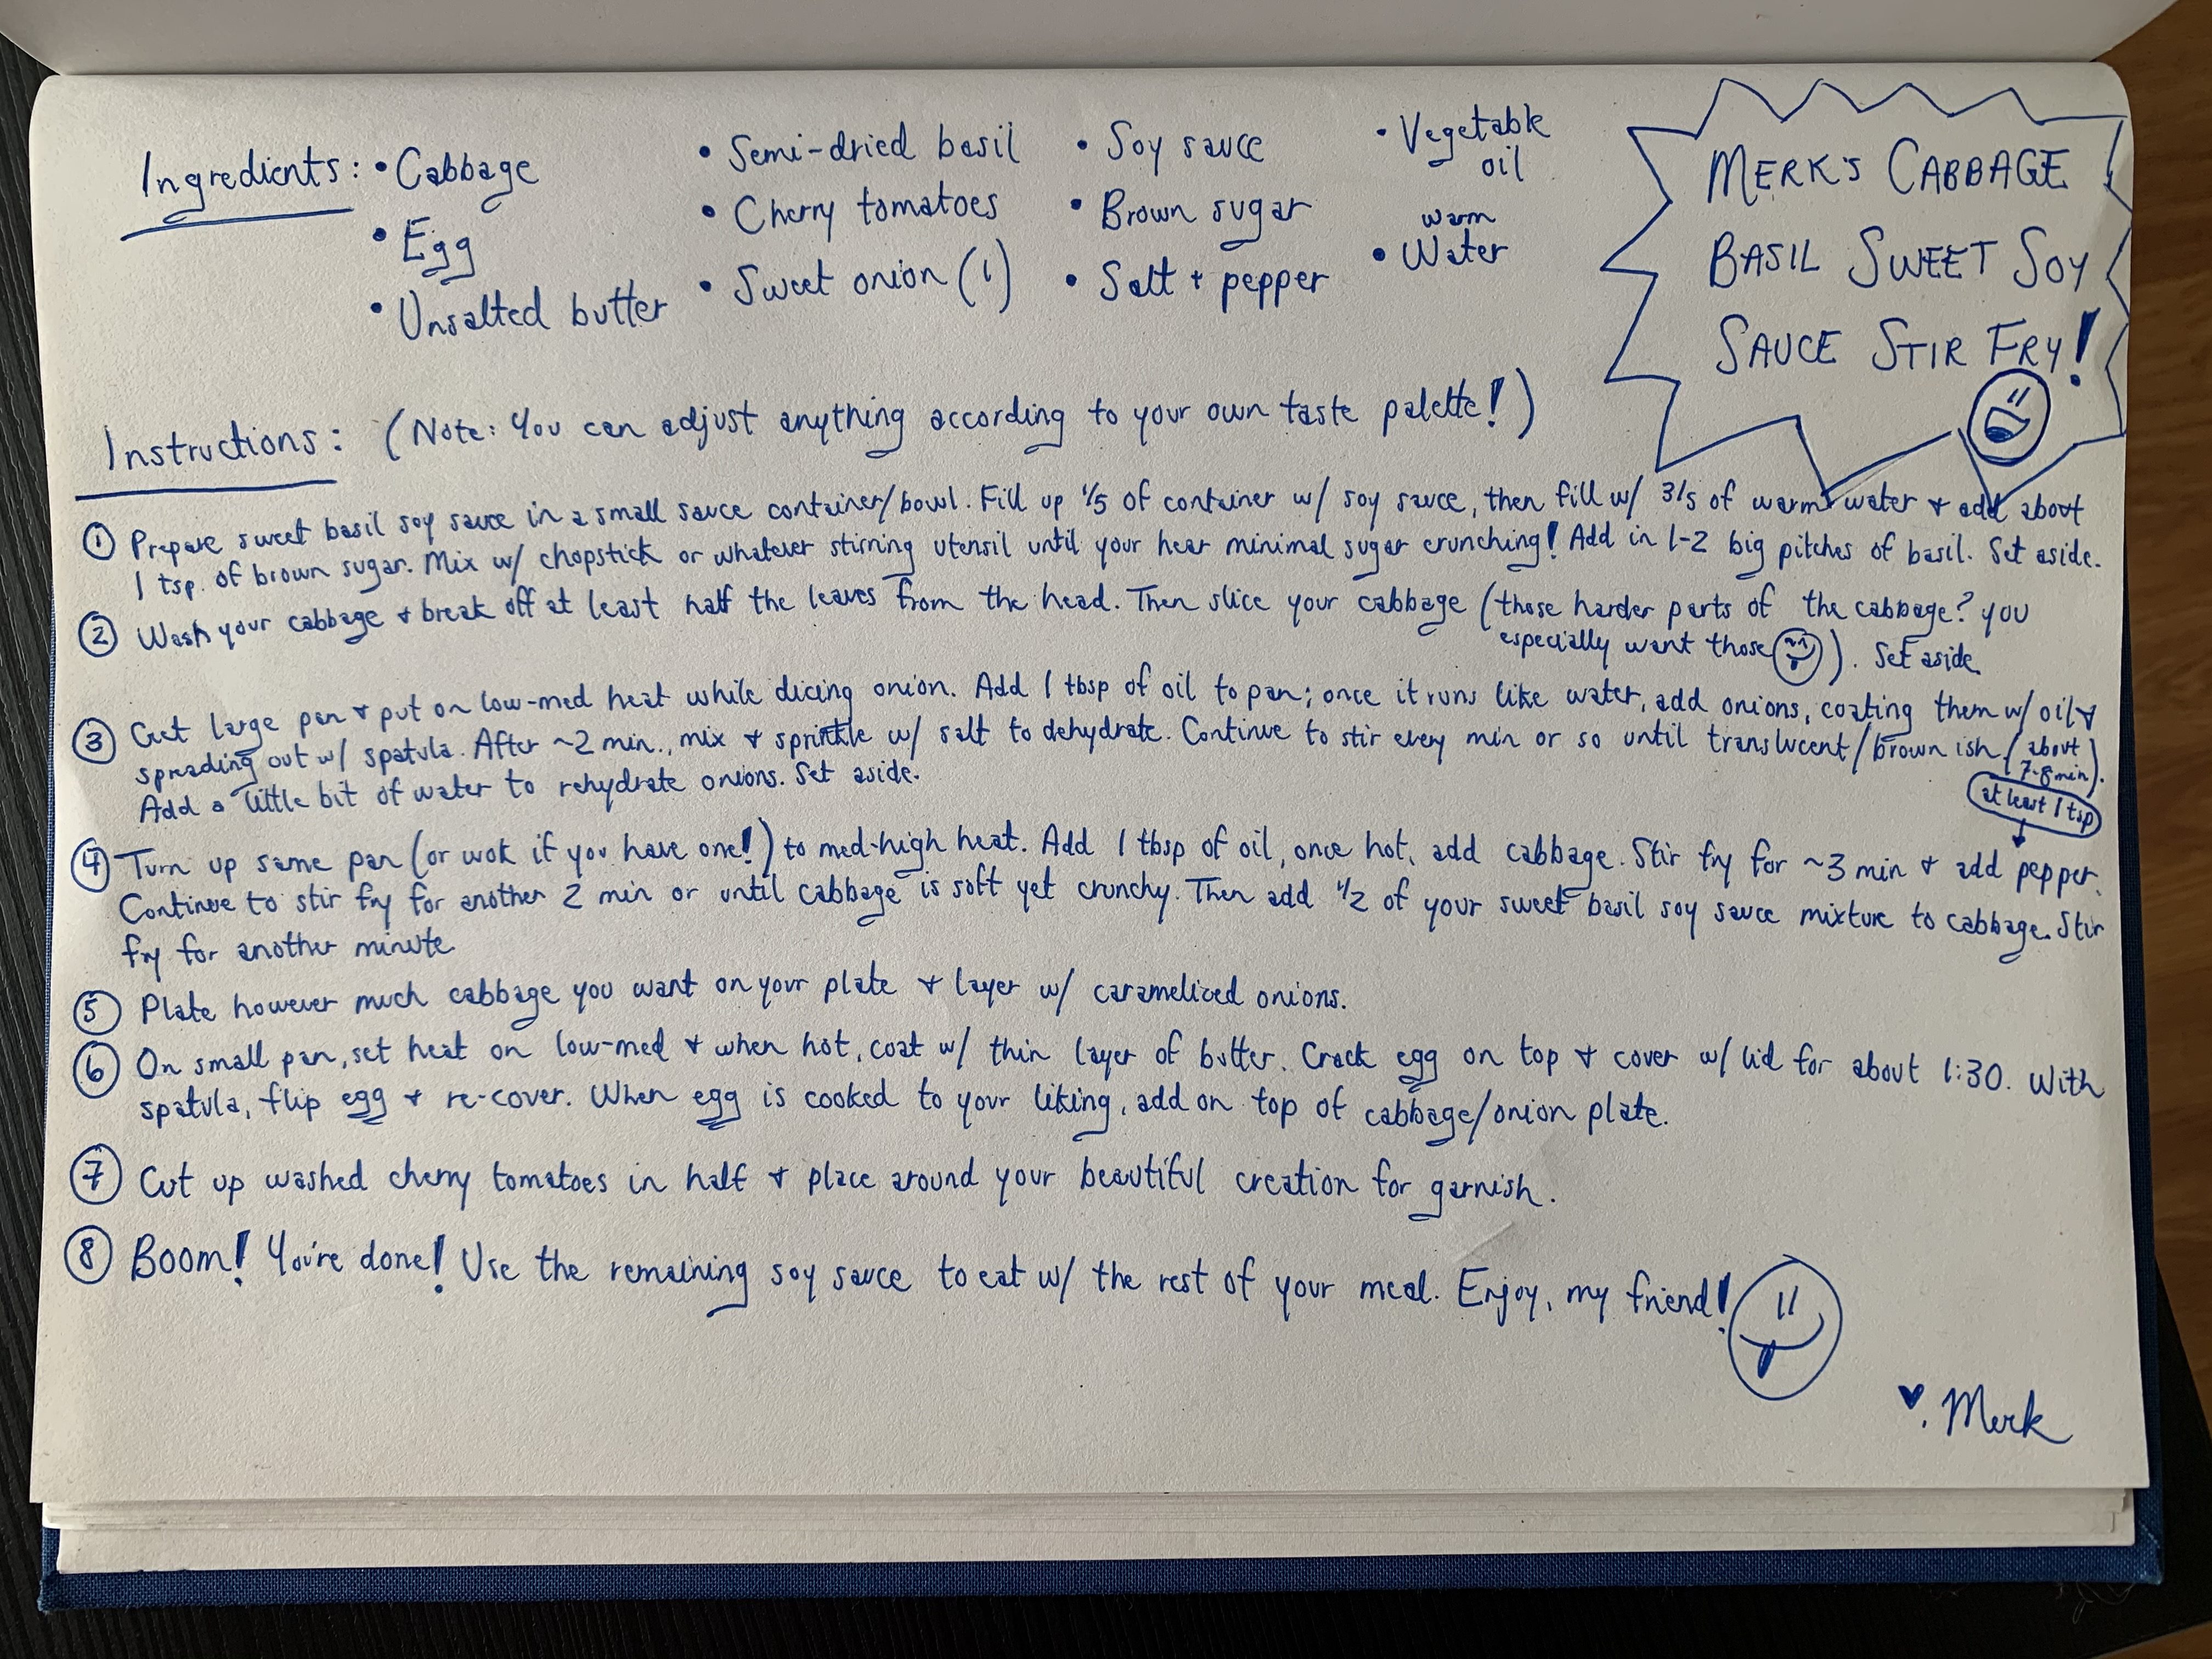 MERK'S CABBAGE
BASIL SWEET SOY
SAUCE STIR FRY!
Ingredients:
• Cabbage
• Egg
• Unsalted butter
• Semi-dried basil
• Cherry tomatoes
• Sweet onion (1)
• Soy sauce
• Brown sugar
• Salt + pepper
• Vegetable
oil
warm
• Water
Instructions: (Note: You can adjust anything according to your own taste palette!)
① Prepare sweet basil soy sauce in a small sauce container/bowl. Fill up 1/5 of container w/ soy sauce, then fill w/ 3/5 of warm water + add about
1 tsp. of brown sugar. Mix w/ chopstick or whatever stirring utensil until your hear minimal sugar crunching! Add in 1-2 big pitches of basil. Set aside.
② Wash your cabbage + break off at least half the leaves from the head. Then slice your cabbage (those harder parts of the cabbage? you
especially want those ). Set aside
③ Get large pan + put on low-med heat while dicing onion. Add 1 tbsp of oil to pan; once it runs like water, add onions, coating them w/ oil +
spreading out w/ spatula. After ~2 min., mix + sprinkle w/ salt to dehydrate. Continue to stir every min or so until translucent/brown ish (about
7-8 min).
Add a little bit of water to rehydrate onions. Set aside.
at least 1 tsp
④ Turn up same pan (or wok if you have one!) to med-high heat. Add 1 tbsp of oil, once hot, add cabbage. Stir fry for ~3 min + add pepper.
Continue to stir fry for another 2 min or until cabbage is soft yet crunchy. Then add 1/2 of your sweet basil soy sauce mixture to cabbage. Stir
fry for another minute
⑤ Plate however much cabbage you want on your plate + layer w/ caramelized onions.
⑥ On small pan, set heat on low-med + when hot, coat w/ thin layer of butter. Crack egg on top + cover w/ lid for about 1:30. With
spatula, flip egg + re-cover. When egg is cooked to your liking, add on top of cabbage/onion plate.
⑦ Cut up washed cherry tomatoes in half + place around your beautiful creation for garnish.
⑧ Boom! You're done! Use the remaining soy sauce to eat w/ the rest of your meal. Enjoy, my friend!
♥. Merk